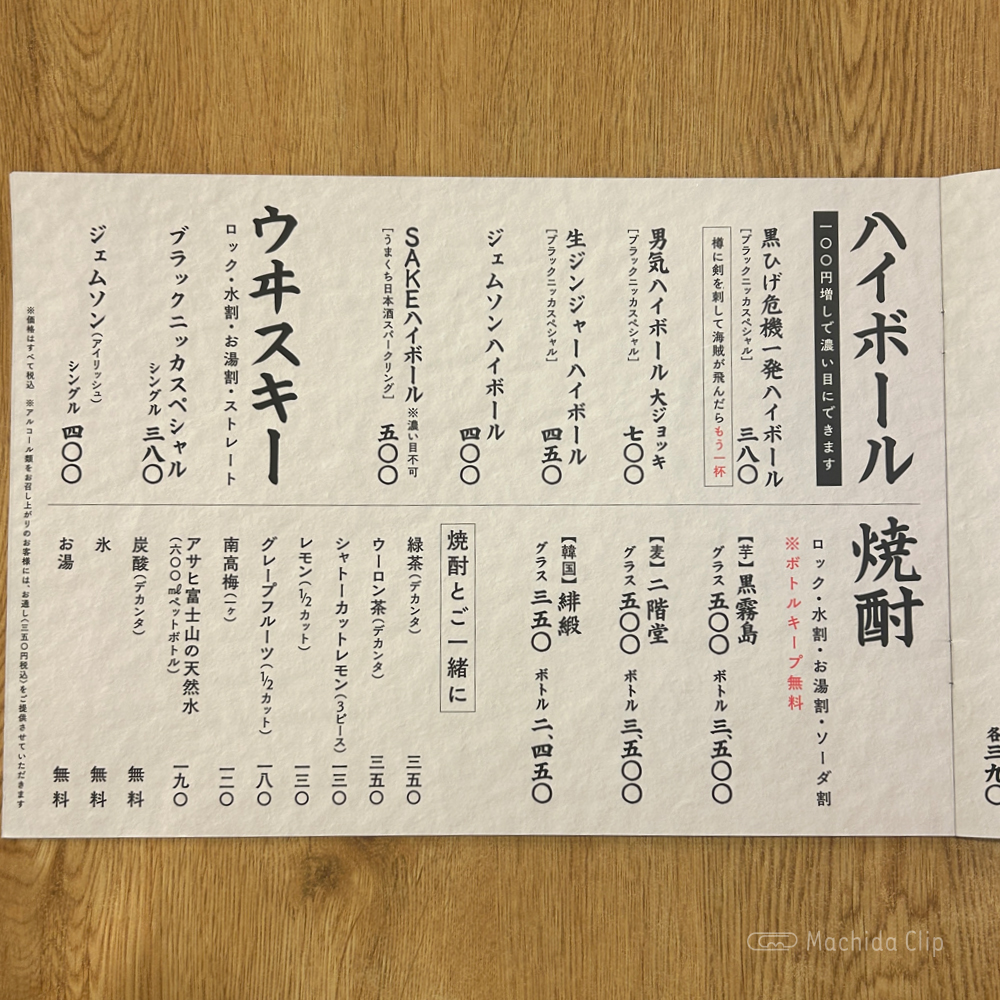 ハイボール
一〇〇円増しで濃い目にできます
黒ひげ危機一発ハイボール
[ブラックニッカスペシャル]
三八〇
樽に剣を刺して海賊が飛んだらもう一杯
男気ハイボール 大ジョッキ
[ブラックニッカスペシャル]
七〇〇
生ジンジャーハイボール
[ブラックニッカスペシャル]
四五〇
ジェムソンハイボール
四〇〇
SAKEハイボール ※濃い目不可
[うまくち日本酒スパークリング]
五〇〇
ウヰスキー
ロック・水割・お湯割・ストレート
ブラックニッカスペシャル
シングル 三八〇
ジェムソン(アイリッシュ)
シングル 四〇〇
焼酎
ロック・水割・お湯割・ソーダ割
※ボトルキープ無料
【芋】黒霧島
グラス 五〇〇 ボトル 三、五〇〇
【麦】二階堂
グラス 五〇〇 ボトル 三、五〇〇
【韓国】緋緞
グラス 三五〇 ボトル 二、四五〇
焼酎とご一緒に
緑茶(デカンタ) 三五〇
ウーロン茶(デカンタ) 三五〇
シャトーカットレモン(3ピース) 一三〇
レモン(1/2カット) 一三〇
グレープフルーツ(1/2カット) 一八〇
南高梅(一ヶ) 一二〇
アサヒ富士山の天然水
(六〇〇mlペットボトル) 一九〇
炭酸(デカンタ) 無料
氷 無料
お湯 無料
※価格はすべて税込 ※アルコール類をお召し上がりのお客様には、お通し(三五〇円税込)をご提供させていただきます
各三九〇
Machida Clip